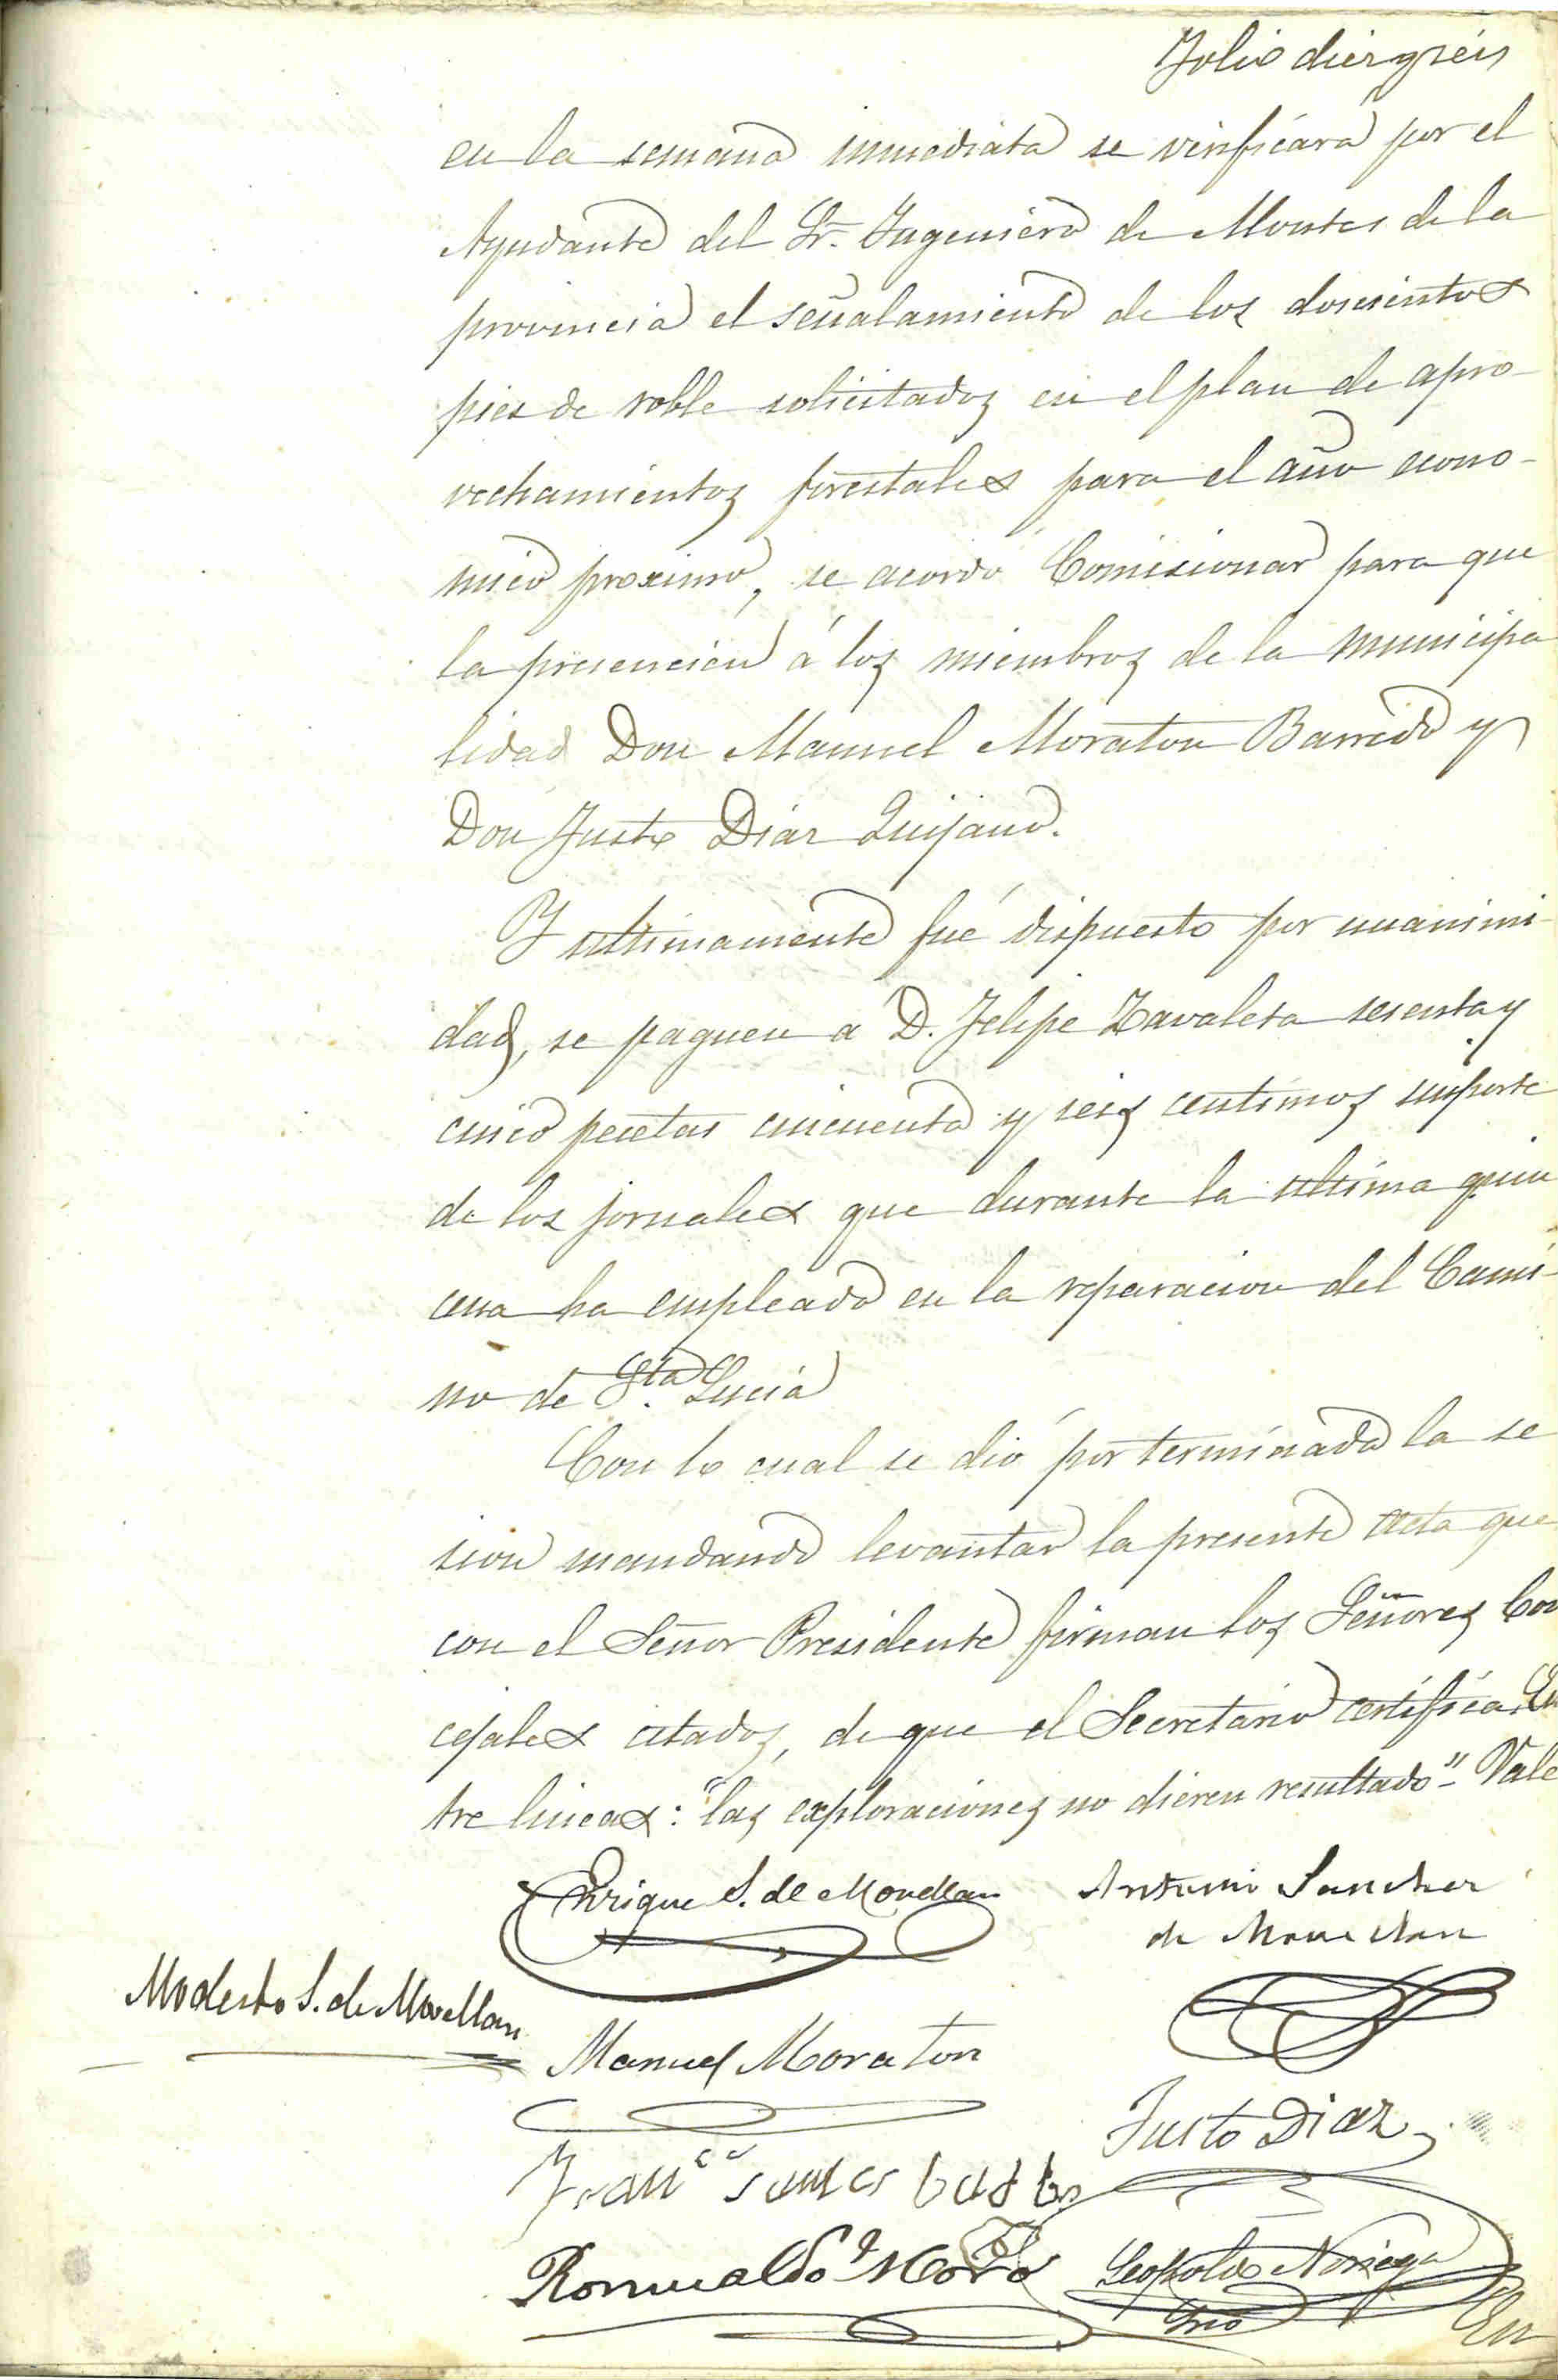 Folio diez y seis
en la semana inmediata se verificará por el
Ayudante del Sr. Ingeniero de Montes de la
provincia el señalamiento de los doscientos
pies de roble solicitados en el plan de apro-
vechamientos forestales para el año econo-
mico proximo, se acordó Comisionar para que
la presencien á los miembros de la municipa
lidad Don Manuel Moraton Barredo y
Don Justo Diaz Quijano.
Y ultimamente fué dispuesto por unanimi
dad, se paguen a D. Felipe Zavaleta sesenta y
cinco pesetas cincuenta y seis centimos importe
de los jornales que durante la ultima quin
cena ha empleado en la reparacion del Cami-
no de Sta. Lucia
Con lo cual se dió por terminada la se
sion mandando levantar la presente acta que
con el Señor Presidente firman los Señores Con
cejales citados, de que el Secretario certifica. En
tre lineas: "las exploraciones no dieren resultado"- Vale
Enrique S. de Movellan Antonio Sanchez
de Movellan
Modesto S. de Movellan
Manuel Moraton
Justo Diaz
Franco
Romualdo Moro Leopoldo Noriega
Srio
En